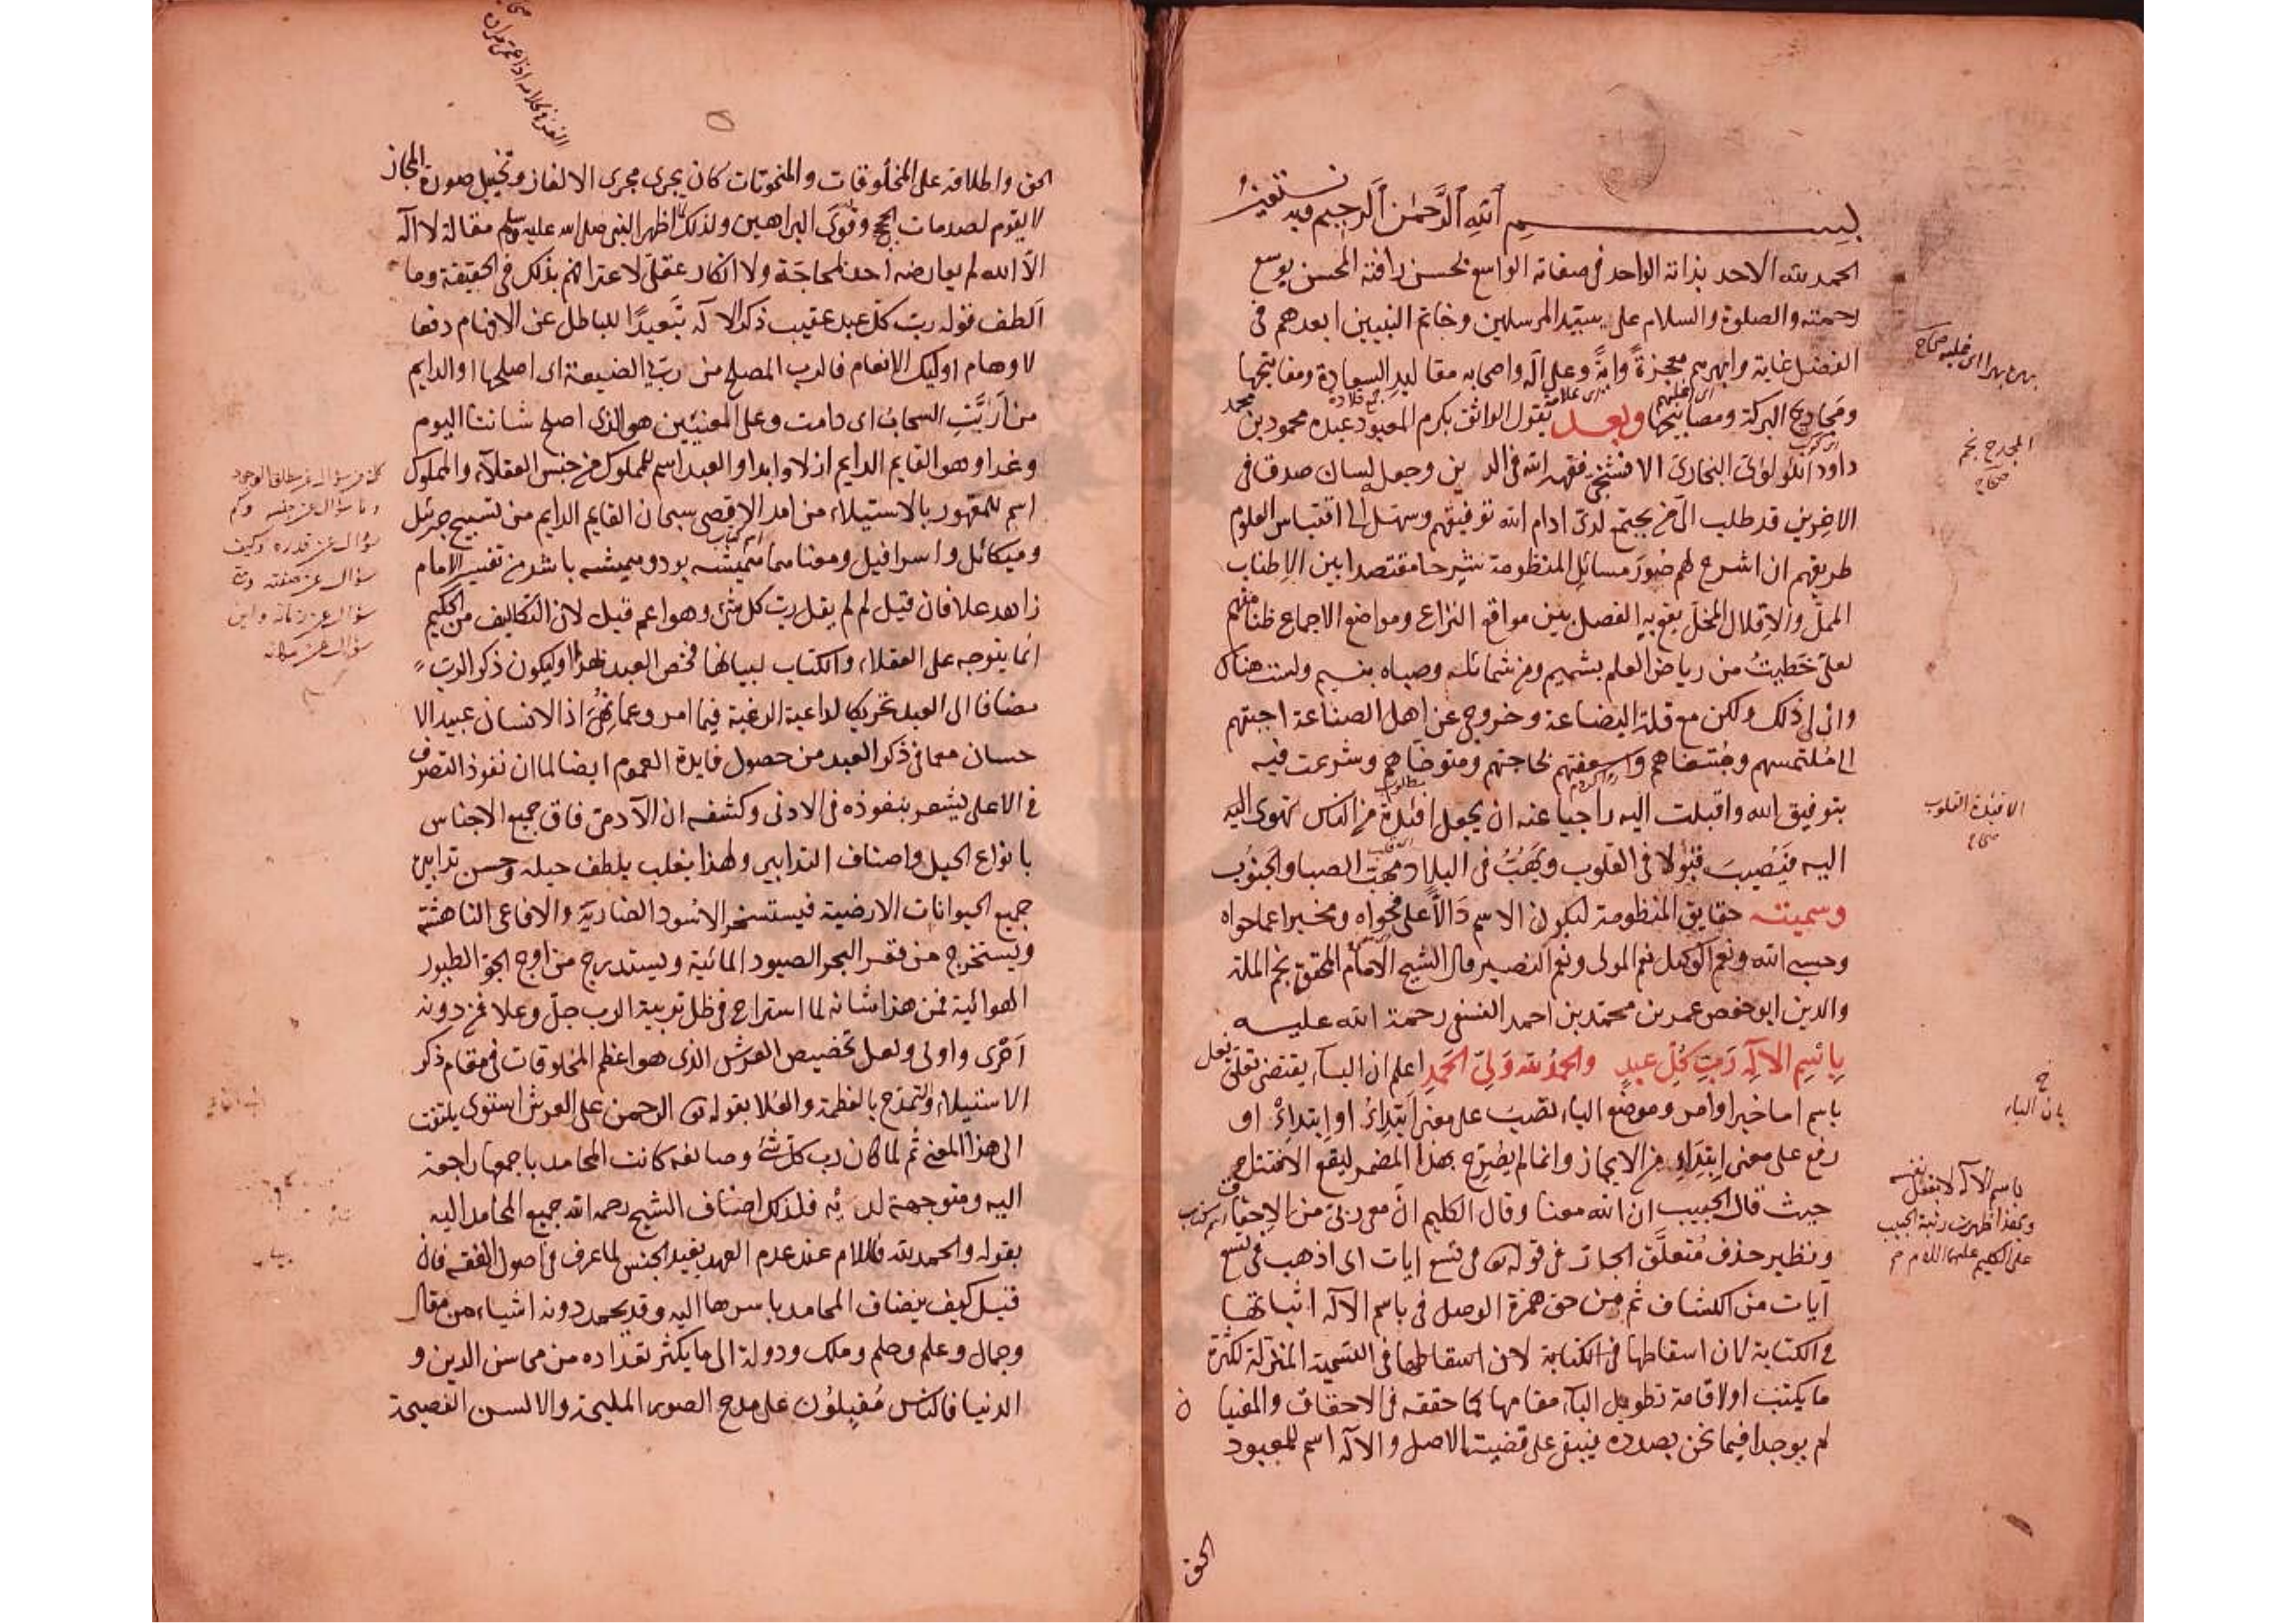 بسم الله الرحمن الرحيم وبه نستعين
الحمد لله الاحد بذاته الواحد فى صفاته الواسع بحسن رافته المحسن بوسع
رحمته والصلوة والسلام على سيد المرسلين وخاتم النبيين ابعدهم فى
الفضل غاية وابهرهم معجزة واية وعلى آله واصحابه مقاليد السعادة ومفاتيحها
ومجاديح البركة ومصابيحها وبعد يقول الواثق بكرم المعبود عبده محمود بن محمد
داود اللؤلؤى البخارى الافشنجى فقهه الله فى الدين وجعل له لسان صدق فى
الاخرين قد طلب الى من يجتمع لدى ادام الله توفيقهم وسهل الى اقتباس العلوم
طريقهم ان اشرح لهم صور مسائل المنظومة شرحا مقتصدا بين الاطناب
الممل والاقلال المخل يقع به الفصل بين مواقع النزاع ومواضع الاجماع ظنا منهم
لعلى خطيت من رياض العلم بشميم ومن شمائله وصباه بنسيم ولست هناك
وانى لى ذلك ولكن مع قلة البضاعة وخروجى عن اهل الصناعة اجبتهم
الى ملتمسهم ومبتغاهم واسعفتهم بحاجتهم ومتوخاهم وشرعت فيه
بتوفيق الله واقبلت اليه راجيا عنه ان يجعل افئدة من الناس تهوى اليه
اليه فيصيب قبولا فى القلوب ويهب فى البلاد مهب الصبا والجنوب
وسميته حقايق المنظومة ليكون الاسم دالا على فحواه ومخبرا عما حواه
وحسبى الله ونعم الوكيل نعم المولى ونعم النصير قال الشيخ الامام المحقق نجم الملة
والدين ابو حفص عمر بن محمد بن احمد النسفى رحمة الله عليه
باسم الاله رب كل عبد والحمد لله ولى الحمد اعلم ان الباء يقتضى تعلق فعل
باسم اما خبر او امر وموضع الباء نصب على معنى ابتدائ او ابتداء او
رفع على معنى ابتداء من الايجاز وانما لم يصرح بهذا المضمر ليقع الافتتاح
حيث قال الحبيب ان الله معنا وقال الكليم ان معى ربى من الاحقاف
ونظير حذف متعلق الجار فى قوله تع فى تسع ايات اى اذهب فى تسع
آيات من الكشاف ثم من حق همزة الوصل فى باسم الاله اثباتها
فى الكتابة لان اسقاطها فى الكتابة لان اسقاطها فى التسمية المنزلة لكثرة
ما يكتب او لاقامة تطويل الباء مقامها كما حققه فى الاحقاف والمعنيا ن
لم يوجدا فيما نحن بصدده يبنى على قضية الاصل والاله اسم للمعبود
الحق
المجدح نجم
صحاح
الافئدة القلوب
صحاح
بان الباء
باسم الاله لا بفعل نفسه
وبهذا ظهرت رتبة الحبيب
على الكليم عليهما السلام
الحق واطلاقه على المخلوقات والمنحوتات كان يجرى مجرى الالغاز وتخييل صورة المجاز
لا يقوم لصدمات الحجج وقوى البراهين ولذلك لما اظهر النبى صلى الله عليه وسلم مقالة لا اله
الا الله لم يعارضه احد لمحاجة ولا انكار عقلى لاعترافهم بذلك فى الحقيقة وما
الطف قوله رب كل عبد عقيب ذكر الاله تبعيدا للباطل عن الافهام دفعا
لاوهام اوليك الانعام فالرب المصلح من رب الضيعة اى اصلحها او الدايم
من اربت السحاب اى دامت وعلى المعنيين هو الذى اصلح شاننا اليوم
وغدا وهو القايم الدايم ازلا وابدا والعبد اسم للمملوك من جنس العقلاء والمملوك
اسم للمقهور بالاستيلاء من امد الاقصى سبحان القايم الدايم من تسبيح جبرئل
وميكائل واسرافيل ومعناهما هميشه بود وهميشه باشد من تفسير الامام
زاهد علا فان قيل لم لم يقل رب كل شئ وهو اعم قيل لان التكاليف من الحكيم
انما يتوجه على العقلاء والكتاب لبيانها فخص العبد بهذا او ليكون ذكر الرب
مضافا الى العبد تحريكا لداعية الرغبة فيما امر وعما نهى اذ الانسان عبيد الا
حسان معما فى ذكر العبد من حصول فايدة العموم ايضا لما ان نفوذ التصرف
فى الاعلى يشعر بنفوذه فى الادنى وكشفه ان الآدمى فاق جميع الاجناس
بانواع الحيل واصناف التدابير ولهذا يغلب بلطف حيله وحسن تدابيره
جميع الحيوانات الارضية فيستسخر الاسود الضارية والافاعى الناهشة
ويستخرج من قعر البحر الصيود المائية ويستدرج من اوج الجو الطيور
الهوائية فمن هذا شانه لما استراح فى ظل تربية الرب جل وعلا فمن دونه
احرى واولى ولعل تخصيص العرش الذى هو اعظم المخلوقات فى مقام ذكر
الاستيلاء والتمدح بالعظمة والعلا بقوله تع الرحمن على العرش استوى يلتفت
الى هذا المعنى ثم لما كان رب كل شئ وصانعه كانت المحامد باجمعها راجعة
اليه ومتوجهة لديه فلذلك اضاف الشيخ رحمه الله جميع المحامد اليه
بقوله والحمد لله فاللام عند عدم العهد يفيد الجنس لما عرف فى اصول الفقه فان
قيل كيف يضاف المحامد باسرها اليه وقد يحمد دونه اشياء من مقال
وجمال وعلم وحلم وملك ودولة الى ما يكثر تعداده من محاسن الدين و
الدنيا فالناس مقبلون على مدح الصور المليحة والالسن الفصيحة
سؤال عن مطلق الوجود
وما سؤال عن جنسه وكم
سؤال عن قدره وكيف
سؤال عن صفته ومتى
سؤال عن زمانه واين
سؤال عن مكانه